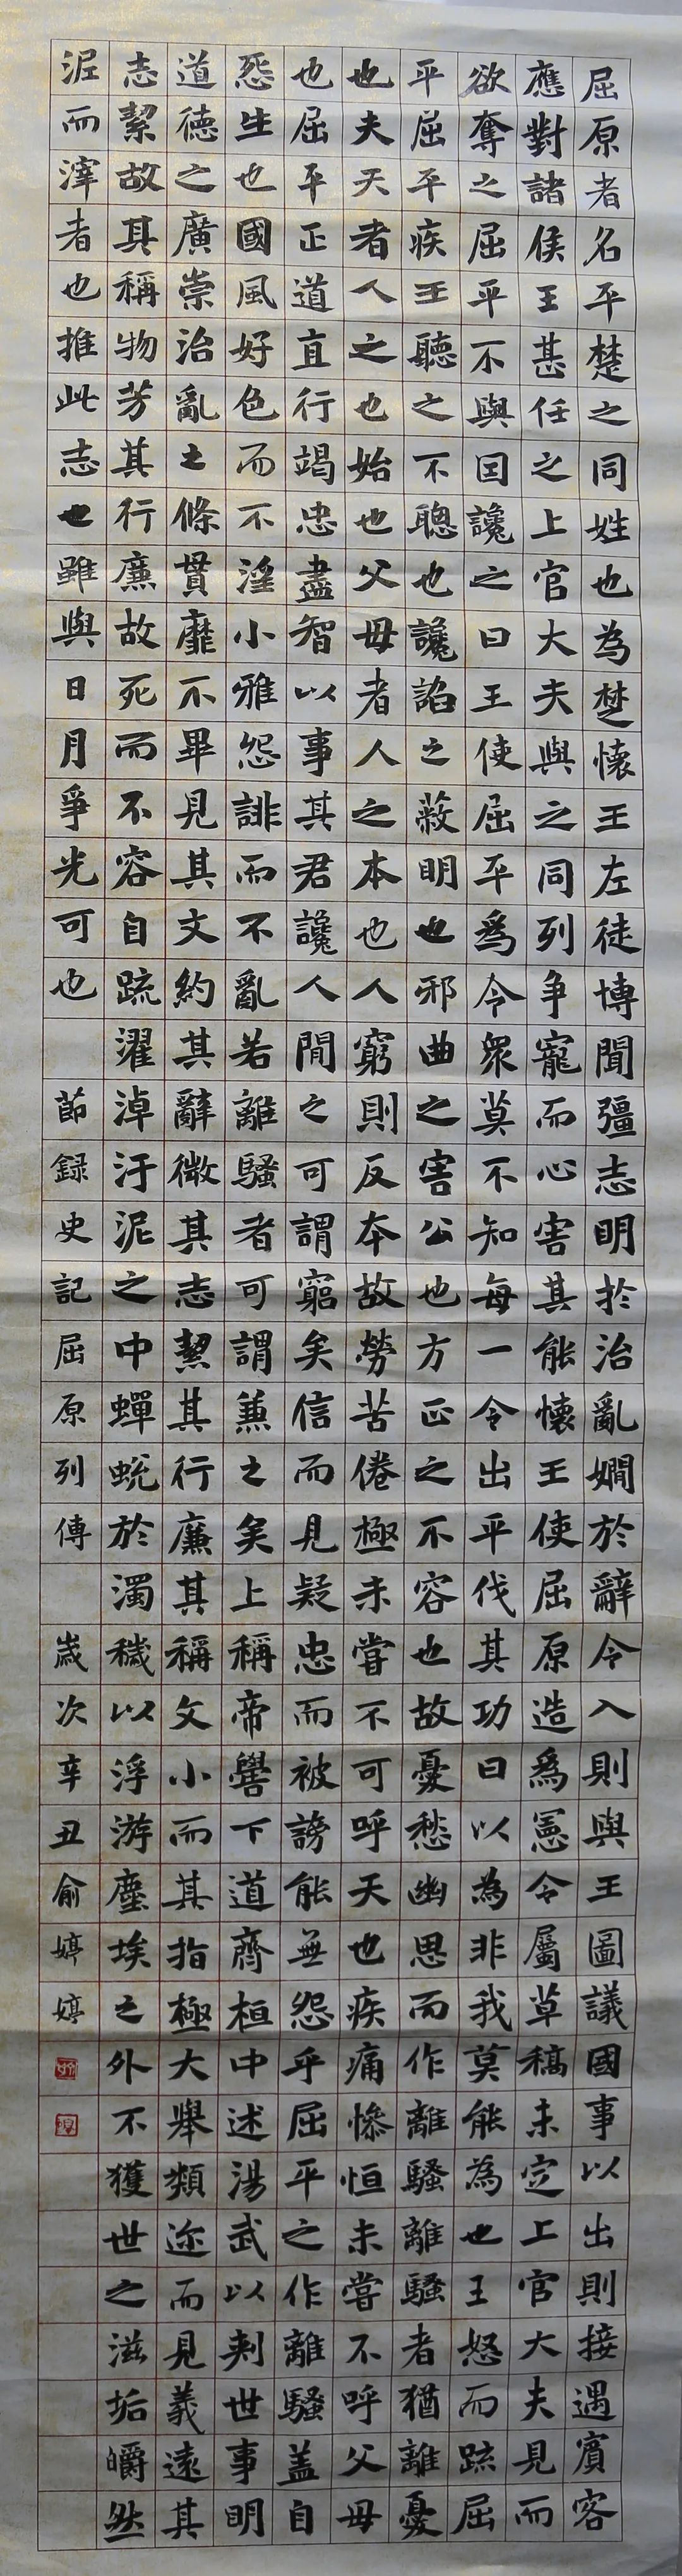 屈原者名平楚之同姓也為楚懷王左徒博聞彊志明於治亂嫺於辭令入則與王圖議國事以出則接遇賓客
應對諸侯王甚任之上官大夫與之同列争寵而心害其能懷王使屈原造爲憲令屬草稿未定上官大夫見而
欲奪之屈平不與因讒之曰王使屈平爲令衆莫不知每一令出平伐其功曰以為非我莫能為也王怒而疏屈
平屈平疾王聽之不聰也讒諂之蔽明也邪曲之害公也方正之不容也故憂愁幽思而作離騷離騷者猶離憂
也夫天者人之始也父母者人之本也人窮則反本故勞苦倦極未嘗不可呼天也疾痛慘怛未嘗不呼父母
也屈平正道直行竭忠盡智以事其君讒人間之可謂窮矣信而見疑忠而被謗能無怨乎屈平之作離騷蓋自
怨生也國風好色而不淫小雅怨誹而不亂若離騷者可謂兼之矣上稱帝嚳下道齊桓中述湯武以刺世事明
道德之廣崇治亂之條貫靡不畢見其文約其辭微其志絜其行廉其稱文小而其指極大舉類迩而見義遠其
志絜故其稱物芳其行廉故死而不容自疏濯淖汙泥之中蟬蛻於濁穢以浮游塵埃之外不獲世之滋垢皭然
泥而滓者也推此志也雖與日月爭光可也 節録史記屈原列傳 歲次辛丑俞婷婷